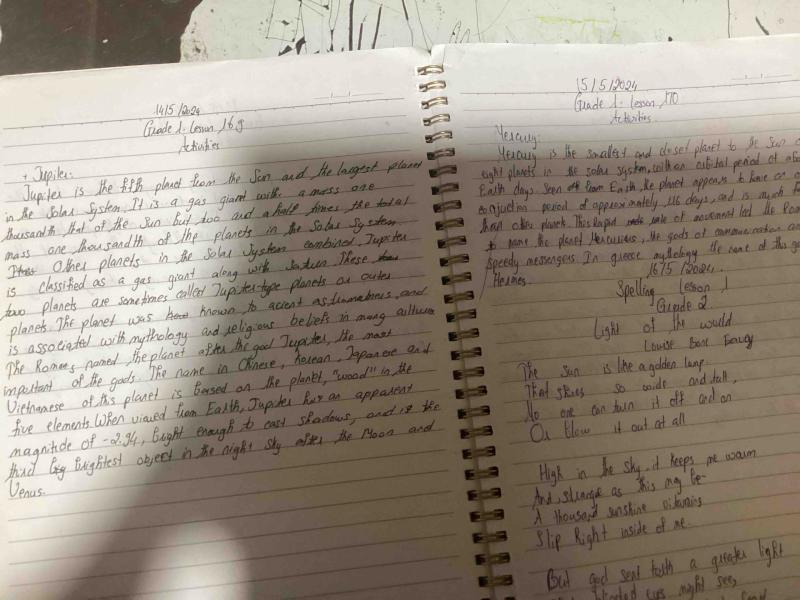 14/5/2024
Grade 1: Lesson 169
Activities
+ Jupiter:
Jupiter is the fifth planet from the Sun and the largest planet
in the Solar System. It is a gas giant with a mass one
thousandth that of the Sun but two and a half times the total
mass one thousandth of the planets in the Solar System
Other planets in the Solar System combined. Jupiter
is classified as a gas giant along with Saturn. These
two planets are sometimes called Jupiter-type planets or outer
planets. The planet was known to acient astronomers, and
is associated with mythology and religious beliefs in many culture
The Romans named the planet after the god Jupiter, the most
important of the gods. The name in Chinese, Korean, Japanese and
Vietnamese of this planet is based on the planet, "wood" in the
five elements. When viewed from Earth, Jupiter has an apparent
magnitude of -2.94, bright enough to cast shadows, and is the
third brightest object in the night sky after the Moon and
Venus.
15/5/2024
Grade 1: Lesson 170
Activities
Mercury:
Mercury is the smallest and closet planet to the Sun
eight planets in the solar system, with an orbital period of
Earth days. Seen from Earth, the planet appears to have
conjuction period of approximately 116 days, and is much
than other planets. This rapid rate of movement led the
to name the planet Mercurius, the gods of communication
speedy messengers. In greece mythology the name of this
Hermes.
16/5/2024.
Spelling Lesson 1
Grade 2
Light of the world
Louise
The Sun is like a golden lamp
That shines so wide and tall,
No one can turn it off and on
Or blow it out at all
High in the sky, it keeps me warm
And, strange as this may be
A thousand sunshine vitamins
Slip Right inside of me.
But god sent forth a greater light
eyes might see,